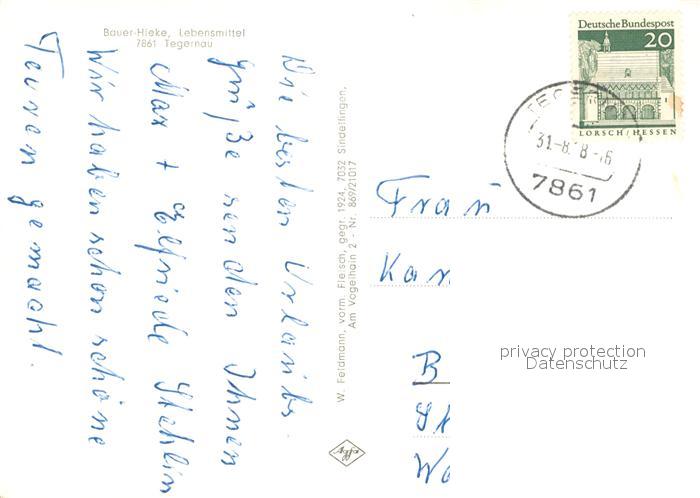 Bauer-Hieke, Lebensmittel
7861 Tegernau
Die besten Urlaubs
grüße senden Ihnen
Max + Elfriede Stehlin
Wir haben schon schöne
Touren gemacht.
W. Feldmann, vorm. Fleisch, gegr. 1924, 7032 Sindelfingen,
Am Vogelhain 2 - Nr. 869/21017
Agfa
Deutsche Bundespost
20
LORSCH/HESSEN
31.-8. 8-16
7861
Frau
Kar
B
St
Wo
privacy protection
Datenschutz